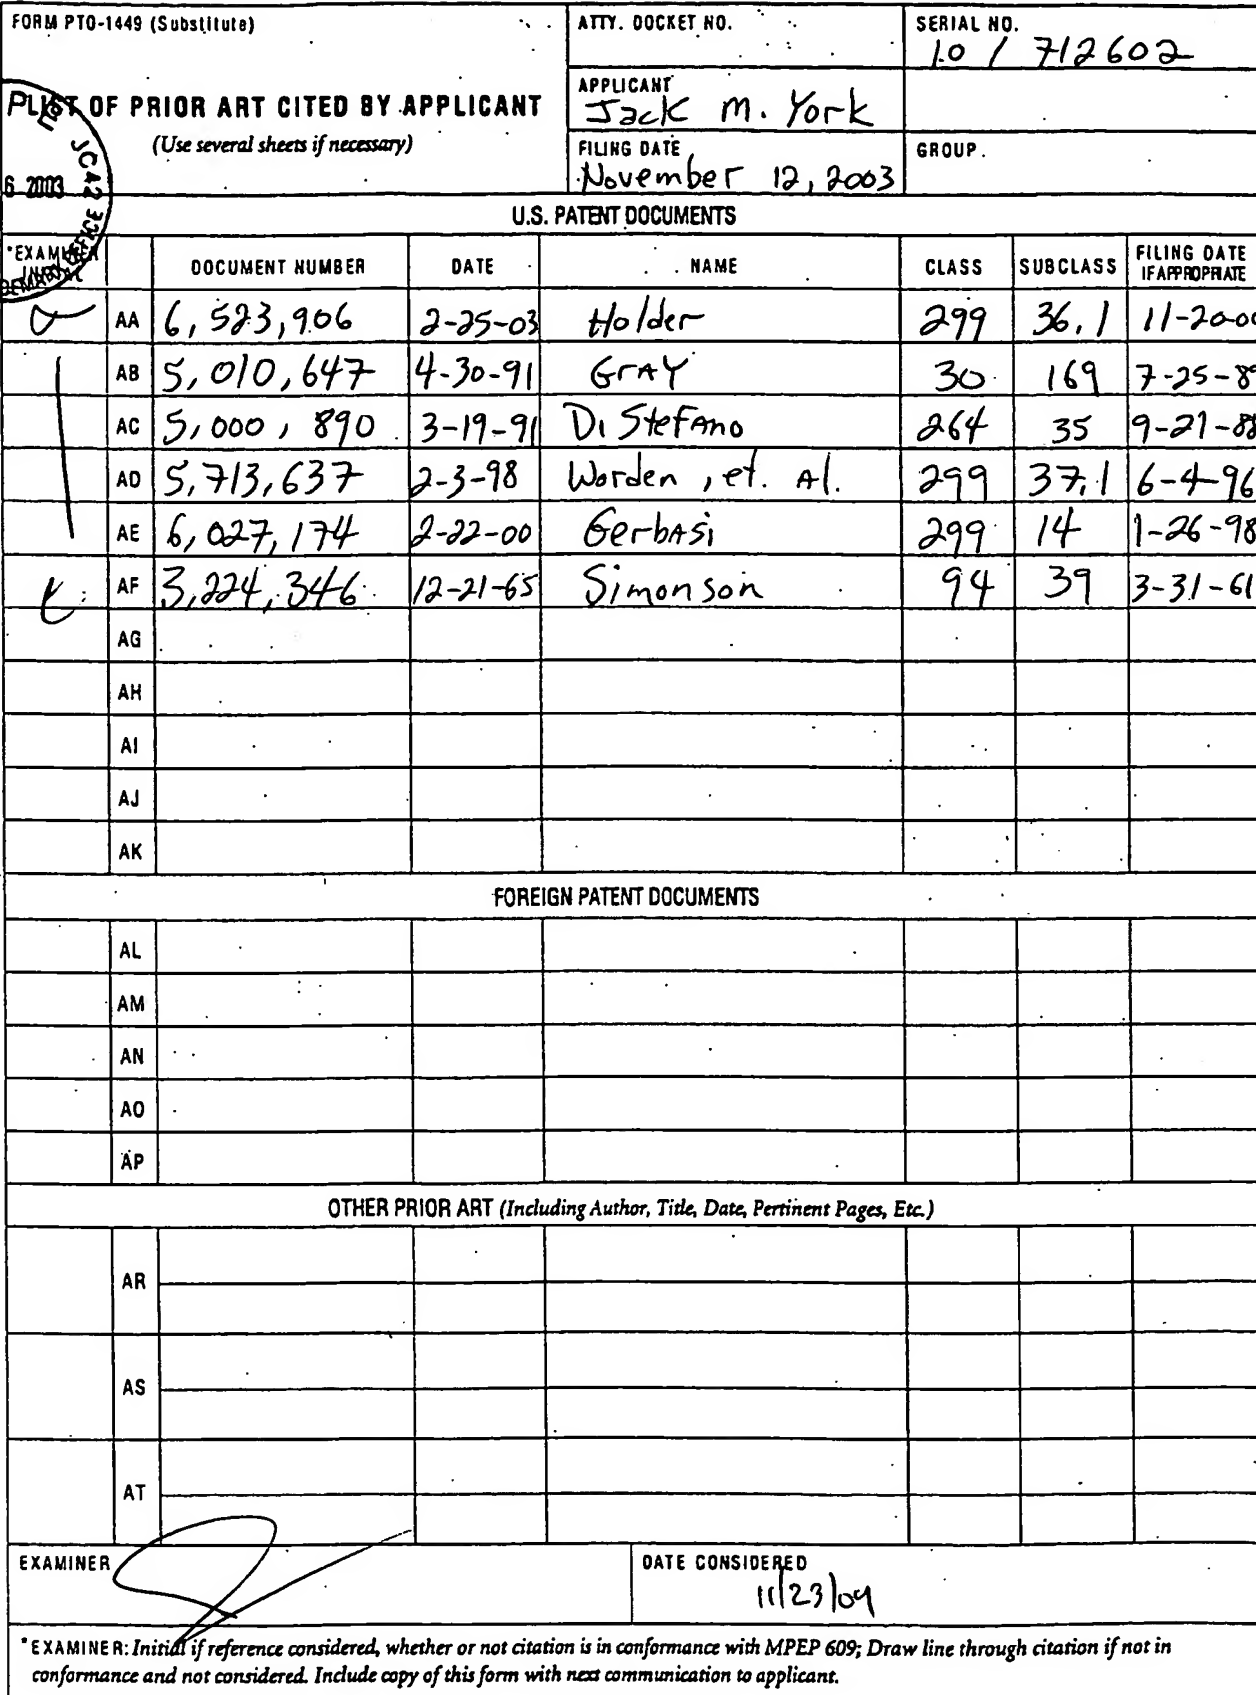 FORM PTO-1449 (Substitute)
ATTY. DOCKET NO.
SERIAL NO.
10 / 712602
LIST OF PRIOR ART CITED BY APPLICANT
(Use several sheets if necessary)
APPLICANT
Jack M. York
FILING DATE
November 12, 2003
GROUP
JC42
6 2003
U.S. PATENT DOCUMENTS
*EXAMINER INITIAL DOCUMENT NUMBER DATE NAME CLASS SUBCLASS FILING DATE IF APPROPRIATE
AA 6,523,906 2-25-03 Holder 299 36.1 11-20-00
AB 5,010,647 4-30-91 Gray 30 169 7-25-89
AC 5,000,890 3-19-91 Di Stefano 264 35 9-21-88
AD 5,713,637 2-3-98 Worden, et. Al. 299 37.1 6-4-96
AE 6,027,174 2-22-00 Gerbasi 299 14 1-26-98
AF 3,224,346 12-21-65 Simonson 94 39 3-31-61
AG
AH
AI
AJ
AK
FOREIGN PATENT DOCUMENTS
AL
AM
AN
AO
AP
OTHER PRIOR ART (Including Author, Title, Date, Pertinent Pages, Etc.)
AR
AS
AT
EXAMINER
DATE CONSIDERED
11/23/04
*EXAMINER: Initial if reference considered, whether or not citation is in conformance with MPEP 609; Draw line through citation if not in
conformance and not considered. Include copy of this form with next communication to applicant.